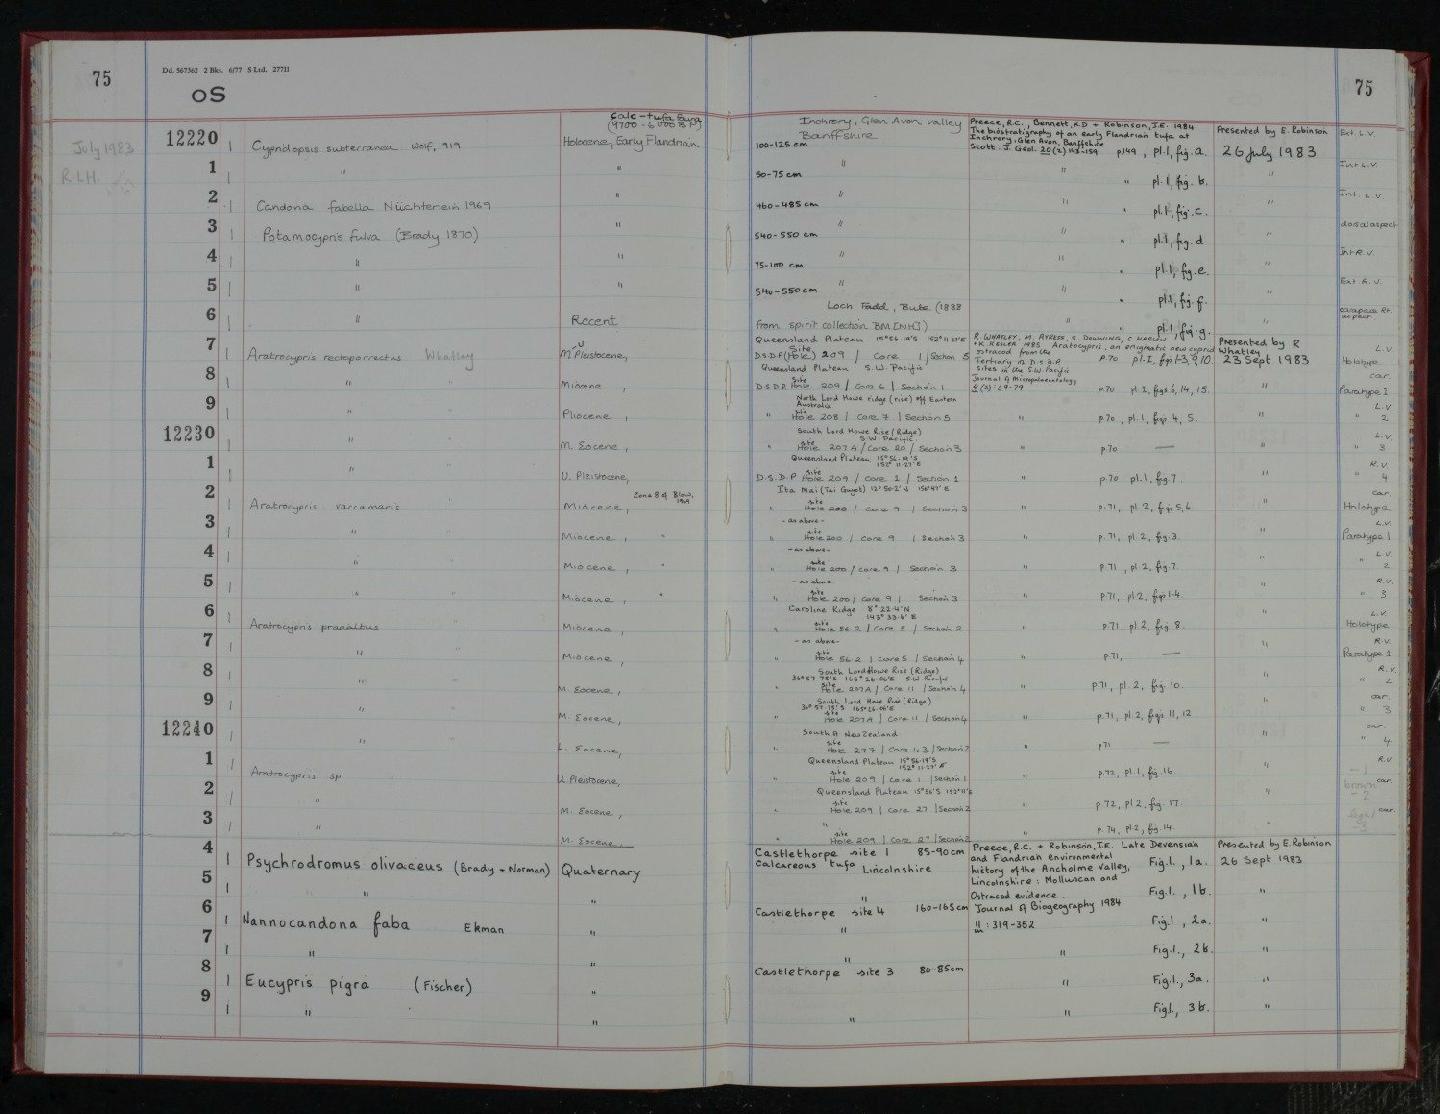 75
Dd. 567362 2 Bks. 6/77 S Ltd. 27711
75
OS
July 1983
R.L.H.
12220 1 Cypridopsis subterranea Wolf, 1919 Calc-tufa (9700 - 6000 B.P.) Holocene, Early Flandrian. Inchrory, Glen Avon, valley Banffshire 100-125 cm Preece, R.C., Bennett, K.D + Robinson, J.E. 1984 The biostratigraphy of an early Flandrian tufa at Inchrory, Glen Avon, Banffshire Scott. J. Geol. 20(2) 143-159 p149, pl.1, fig.a. Presented by E. Robinson 26 July 1983 Ext. L.V.
1 1 " " " 50-75 cm " " pl.1, fig. b. " Int L.V.
2 1 Candona fabella Nüchterein 1969 " " 460-485 cm " " pl.1, fig.c. " Int. L.V
3 1 Potamocypris fulva (Brady 1870) " " 540-550 cm " " pl.1, fig.d " dorsal aspect
4 1 " " " 75-100 cm " " pl.1, fig.e. " Int R.V.
5 1 " " " 540-550cm " " pl.1, fig.f. Ext. R.V.
6 1 " Recent Loch Fadd, Bute (1888 from spirit collection BM[NH]) " " pl.1, fig.g. " carapace Rt.
7 Aratrocypris rectoporrectus Whatley Pleistocene, Queensland Plateau D.S.D.P. Site (Hole) 209 / Core 1 / Section 5 R. WHATLEY, M. AYRESS, S. DOWNING, C. HARLOW + K. KESLER 1985 Aratrocypris, an enigmatic new cyprid ostracod from the Tertiary in D.S.D.P. sites in the S.W. Pacific Journal of Micropalaeontology p.70 pl.1, fig 1-3, 9, 10. Presented by R Whatley 23 Sept 1983 L.V. Holotype
8 " " Miocene, Queensland Plateau S.W. Pacific D.S.D.P. Site 209 / Core 6 / Section 1 " p.70 pl.1, figs. 6, 14, 15. " car. Paratype 1
9 " " Pliocene, North Lord Howe ridge (rise) off Eastern Australia " site Hole 208 / Core 7 / Section 5 " p.70, pl.1, figs 4, 5. " L.V " 2
12230 " " M. Eocene, South Lord Howe Rise (Ridge) S.W Pacific " site Hole 207A / Core 20 / Section 3 p.70 — " L.V. " 3
1 " " U. Pleistocene, Queensland Plateau 15°56.19'S 152° 11.27'E D.S.D.P site Hole 209 / Core 1 / Section 1 " p.70 pl.1, fig.7 " R.V " 4
2 Aratrocypris varramaris " Miocene, Zone 8 of Blow, 1969 Ita Mai (Tai Guyot) " site Hole 200 / Core 9 / Section 3 " p.71, pl.2, figs 5, 6. " car. Holotype
3 " Miocene, " - as above - " site Hole 200 / Core 9 / Section 3 " p.71, pl.2, fig.3. " L.V. Paratype 1
4 " " Miocene, " - as above - " site Hole 200 / Core 9 / Section 3 " p.71, pl.2, fig.7. " L.V " 2
5 " " Miocene, " - as above - " site Hole 200 / Core 9 / Section 3 " p.71, pl.2, figs 1-4 " R.V. " 3
6 Aratrocypris praealtus " Miocene, Caroline Ridge 8° 22.4'N 143° 33.6' E " site Hole 56.2 / Core 5 / Section 2 " p.71 pl.2, fig 8. " L.V. Holotype
7 " " Miocene, - as above - " site Hole 56.2 / Core 5 / Section 4 " p.71, — " R.V. Paratype 1
8 " " M. Eocene, South Lord Howe Rise (Ridge) S.W. Pacific " site Hole 207A / Core 11 / Section 4 p.71, pl.2, fig. 10. " R.V. " 2
9 " " M. Eocene, South Lord Howe Rise (Ridge) site Hole 207A / Core 11 / Section 4 p.71, pl.2, figs 11, 12 " car. " 3
12240 " L. Eocene, South of New Zealand " site Hole 277 / Core 1.3 / Section 2 " p71 — " car. " 4
1 Aratrocypris sp U. Pleistocene, Queensland Plateau 15°56.19'S 152° 11.27' E " site Hole 209 / Core 1 / Section 1 p.72, pl.1, fig.16. " R.V - 1
2 " M. Eocene, Queensland Plateau " site Hole 209 / Core 27 / Section 2 p.72, pl.2, fig. 17. " car. brown - 2
3 " M. Eocene, " " site Hole 209 / Core / Section 2 " p.74, pl.2, fig.14. " car. light - 3
4 1 Psychrodromus olivaceus (Brady + Norman) Quaternary Castlethorpe site 1 85-90cm Calcareous tufa Lincolnshire Preece, R.C. + Robinson, J.E. Late Devensian and Flandrian environmental history of the Ancholme Valley, Lincolnshire: Molluscan and Ostracod evidence Fig.1., 1a. Presented by E. Robinson 26 Sept 1983
5 1 " " " Journal of Biogeography 1984 Fig.1., 1b. "
6 1 Nannocandona faba Ekman " Castlethorpe site 4 160-165cm " 11 : 319-352 Fig.1, 2a. "
7 1 " " " " Fig.1., 2b. "
8 1 Eucypris pigra (Fischer) " Castlethorpe site 3 80-85cm " Fig.1., 3a. "
9 1 " " " " Fig.1, 3b. "